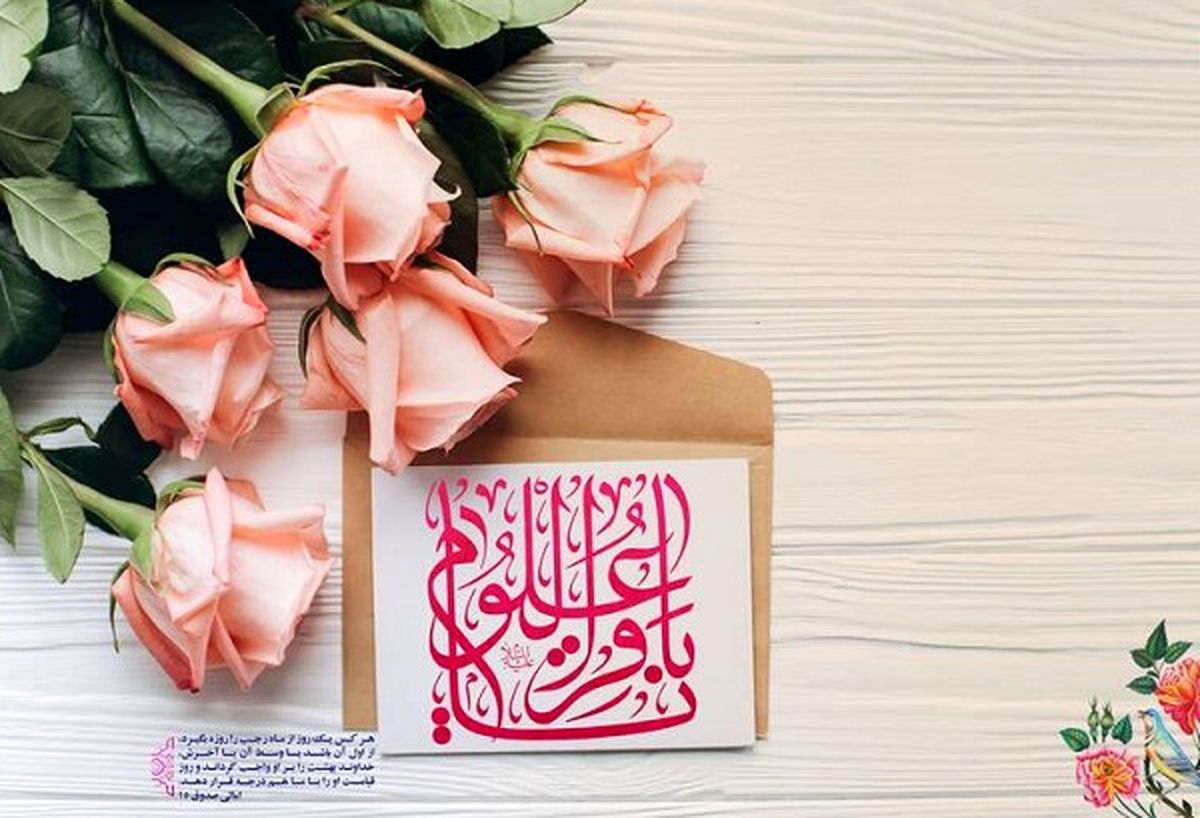 یا باقر العلوم
علیه السلام
هر کس یک روز از ماه رجب را روزه بگیرد،
از اول آن باشد یا وسط آن یا آخرش،
خداوند بهشت را بر او واجب گرداند و روز
قیامت او را با ما هم درجه قرار دهد.
امالی صدوق ۱۵